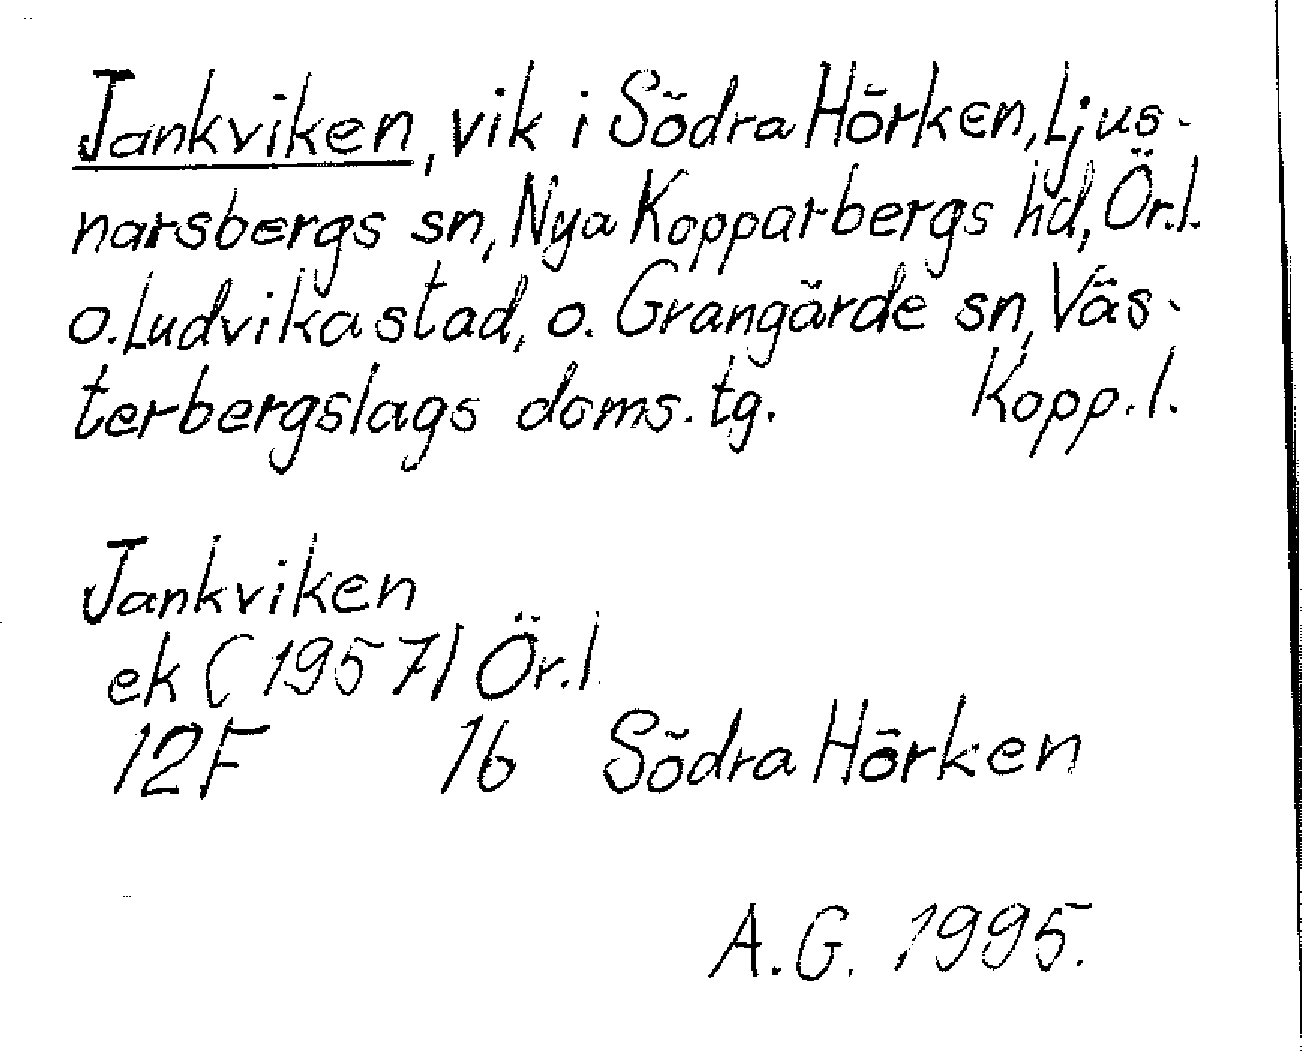 Jankviken, vik i Södra Hörken, Ljus-
narsbergs sn, Nya Kopparbergs hd, Ör.l.
o. Ludvika stad, o. Grangärde sn, Väs-
terbergslags doms. tg. Kopp.l.
Jankviken
ek (1957) Ör.l
12F 16 Södra Hörken
A.G. 1995.